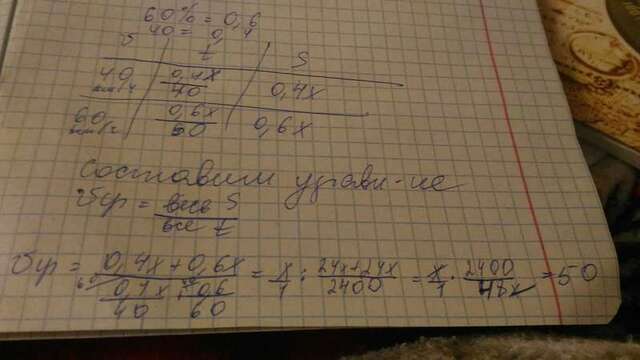 60% = 0,6
40 = 0,4
v t S
40 км/ч 0,4x/40 0,4x
60 км/ч 0,6x/60 0,6x
Составим уравн-ие
vср = весь S/все t
vср = (0,4x+0,6x)/(0,4x/40+0,6/60) = x/1 : (24x+24x)/2400 = x/1 · 2400/48x = 50